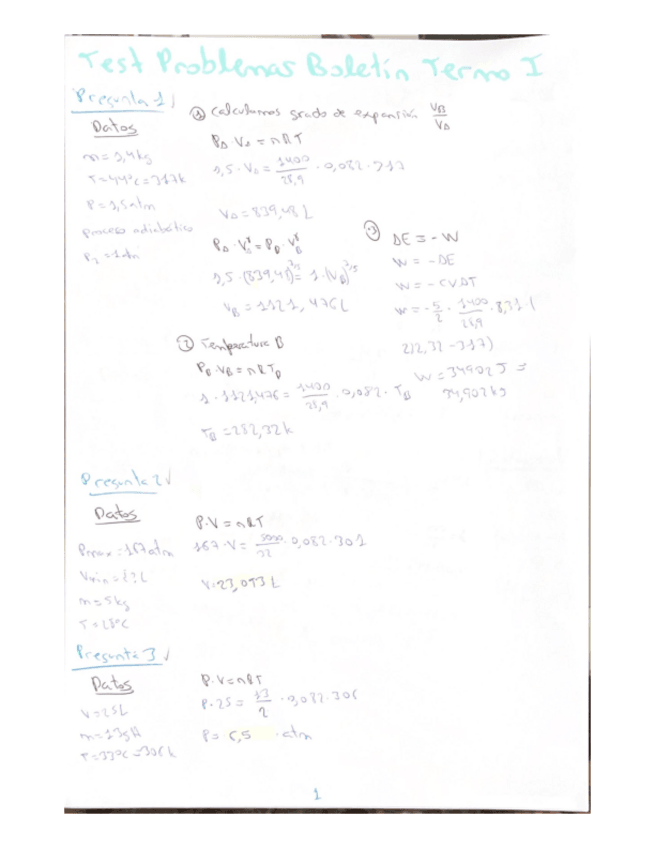 Test Problemas Boletín Termo I
Pregunta 1)
Datos
T=44ºC=317K
P=1,5atm
proceso adiabático
P2=1atm
① Calculamos grado de expansión VB/VA
PA VA = nRT
1,5·VA = 1400/28,9 · 0,082·317
VA=839,48L
PA·VAγ=PB·VBγ
VB=1121,476L
② Temperatura B
PB·VB=nRTB
1·1121,476= 1400/28,9 ·0,082·TB
TB=282,32K
③ DE=-W
W=-DE
W=-CVDT
W=-5/2 · 1400/28,9 ·8,31(
282,32-317)
W=34902J=
34,902kg
Pregunta 2√
Datos
Pmax=167atm
Vmin=¿?L
m=5kg
T=28ºC
P.V=nRT
167·V= 5000/32 ·0,082·301
V=23,093L
Pregunta 3√
Datos
V=25L
m=13gH
T=33ºC=306K
P.V=nRT
P·25= 13/2 ·0,082·306
P= 6,5 atm
1